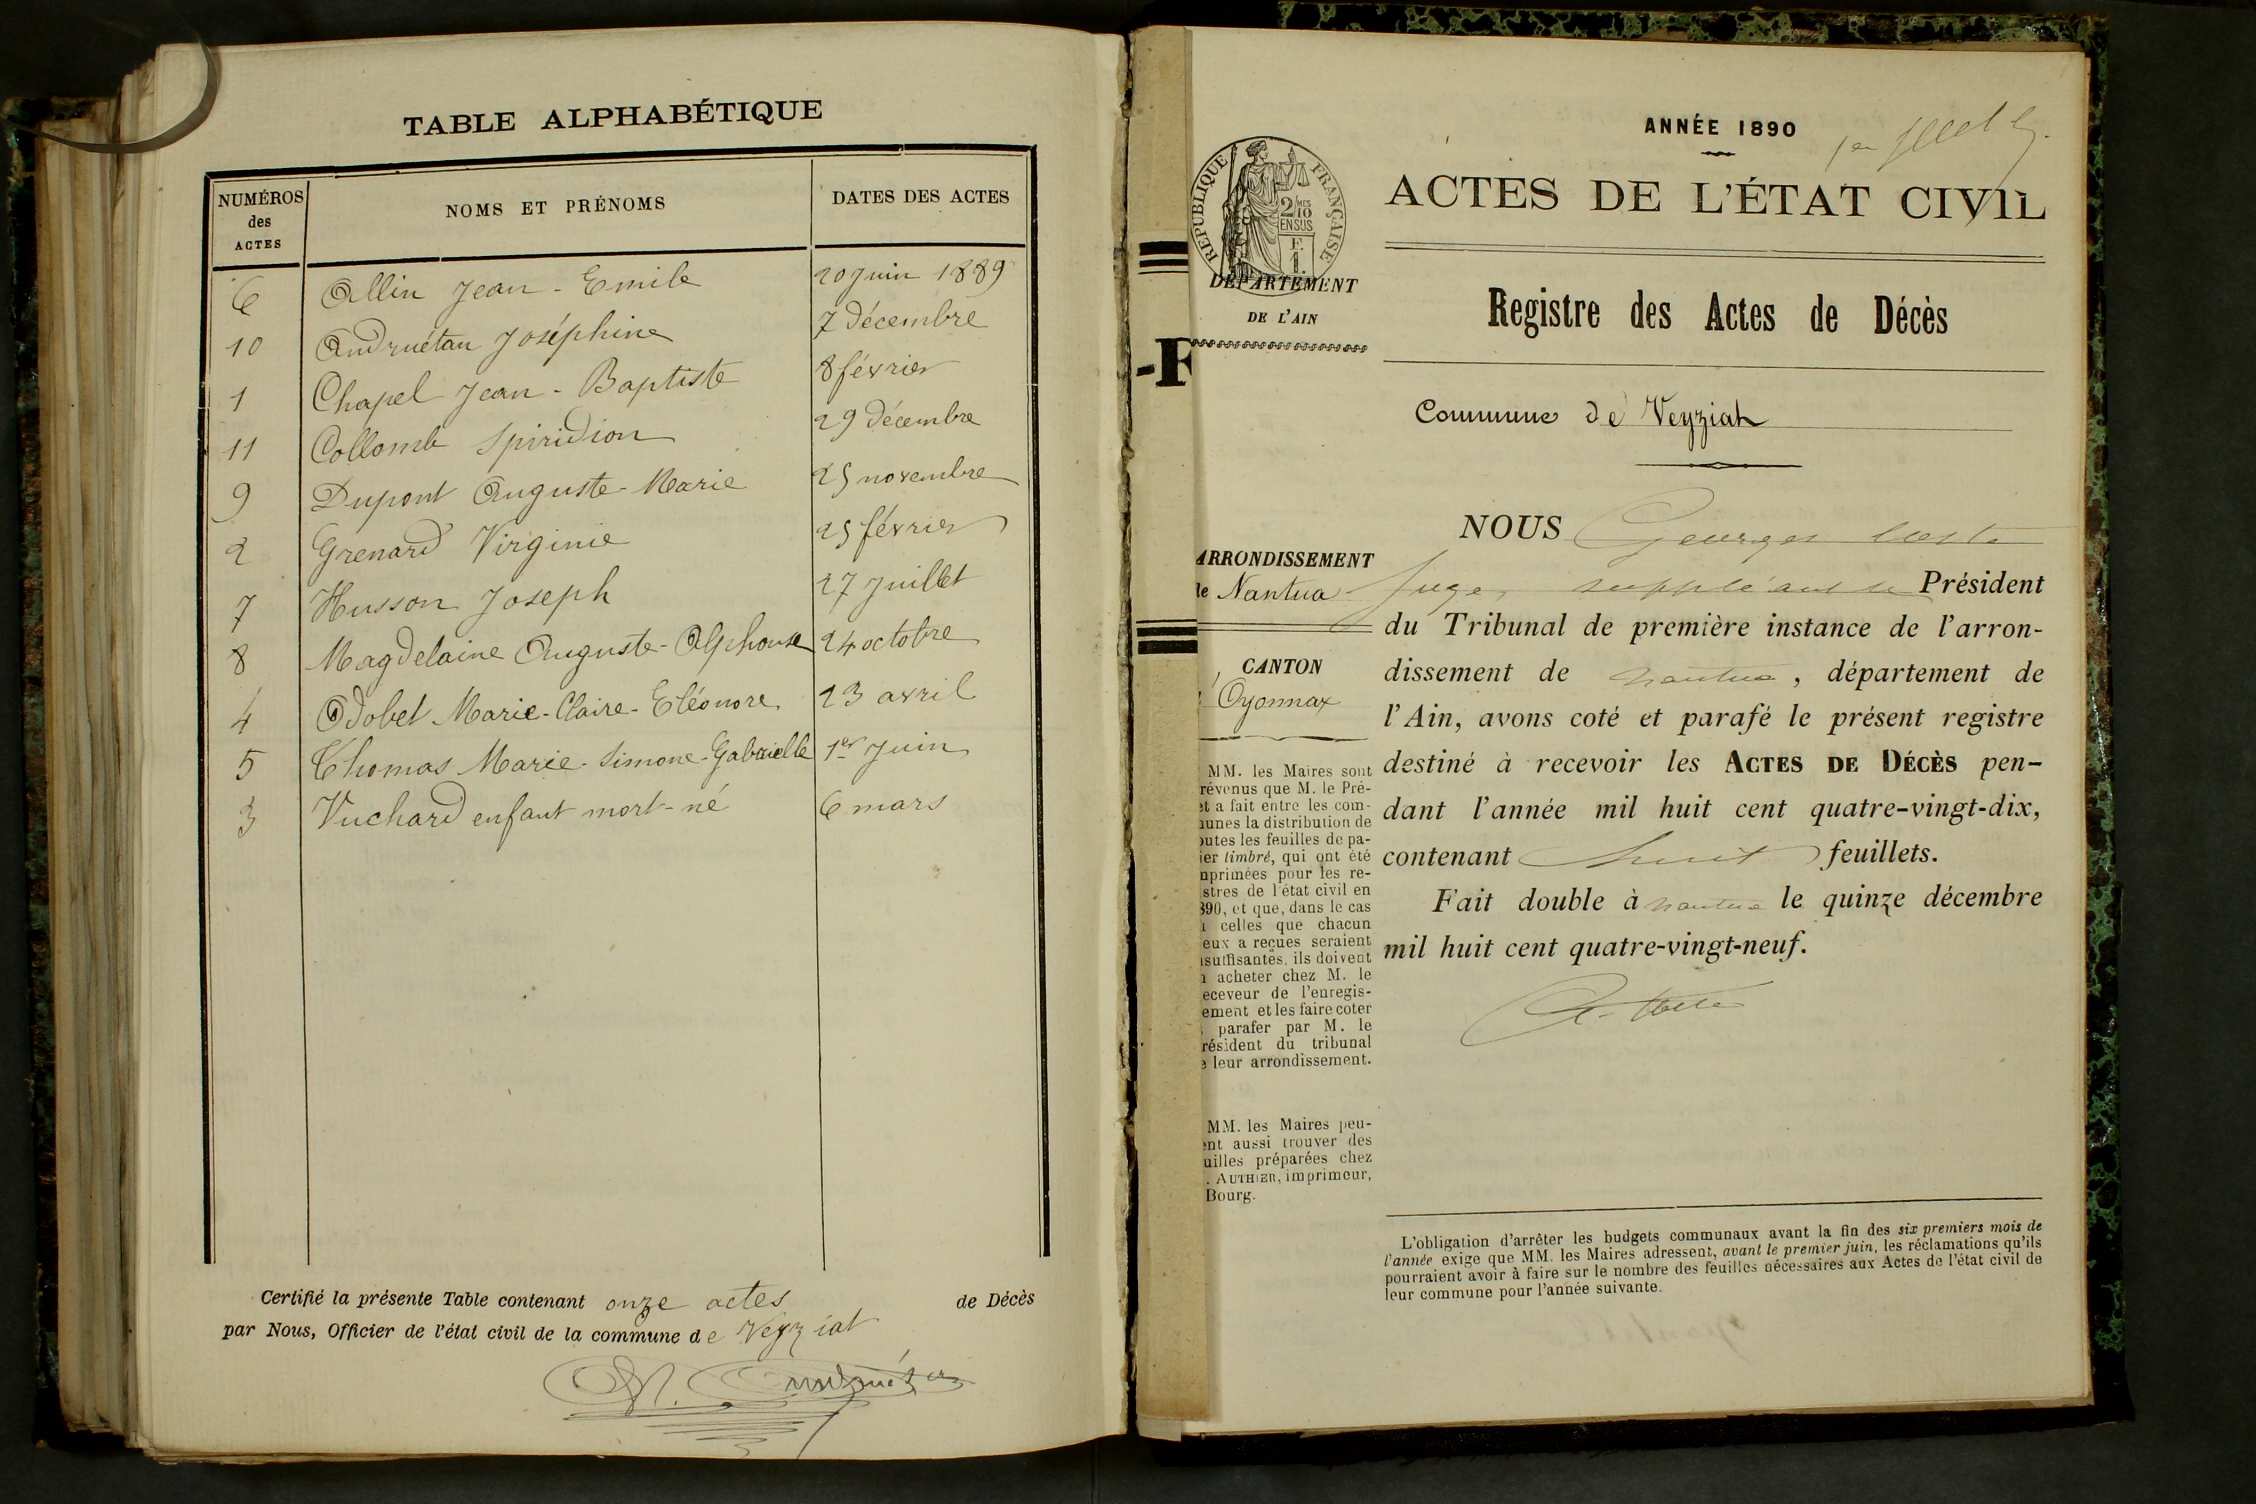 TABLE ALPHABÉTIQUE
NUMÉROS des ACTES
NOMS ET PRÉNOMS
DATES DES ACTES
6 Allin Jean-Emile 20 Juin 1889
10 Andruétan Joséphine 7 décembre
1 Chapel Jean-Baptiste 8 février
11 Collomb Spiridion 29 décembre
9 Dupont Auguste-Marie 25 novembre
2 Grenard Virginie 25 février
7 Husson Joseph 27 Juillet
8 Magdelaine Auguste-Alphonse 24 octobre
4 Odobet Marie-Claire-Eléonore 23 avril
5 Thomas Marie-Simone-Gabrielle 1er Juin
3 Vuchard enfant mort-né 6 mars
Certifié la présente Table contenant onze actes de Décès
par Nous, Officier de l'état civil de la commune de Veyziat
-F
RÉPUBLIQUE FRANÇAISE
2/10
MES
EN SUS
F.
1.
DÉPARTEMENT
DE L'AIN
ARRONDISSEMENT
de Nantua
CANTON
Oyonnax
MM. les Maires sont
révenus que M. le Pré-
et a fait entre les com-
unes la distribution de
outes les feuilles de pa-
ier timbré, qui ont été
mprimées pour les re-
stres de l'état civil en
890, et que, dans le cas
celles que chacun
eux a reçues seraient
nsuffisantes, ils doivent
acheter chez M. le
eceveur de l'enregis-
ement et les faire coter
parafer par M. le
résident du tribunal
e leur arrondissement.
MM. les Maires peu-
ent aussi trouver des
uilles préparées chez
. AUTHIER, imprimeur,
Bourg.
ANNÉE 1890
ACTES DE L'ÉTAT CIVIL
Registre des Actes de Décès
Commune de Veyziat
NOUS Georges
Juge suppléant Président
du Tribunal de première instance de l'arron-
dissement de Nantua, département de
l'Ain, avons coté et parafé le présent registre
destiné à recevoir les ACTES DE DÉCÈS pen-
dant l'année mil huit cent quatre-vingt-dix,
contenant huit feuillets.
Fait double à Nantua le quinze décembre
mil huit cent quatre-vingt-neuf.
L'obligation d'arrêter les budgets communaux avant la fin des six premiers mois de
l'année exige que MM. les Maires adressent, avant le premier juin, les réclamations qu'ils
pourraient avoir à faire sur le nombre des feuilles nécessaires aux Actes de l'état civil de
leur commune pour l'année suivante.